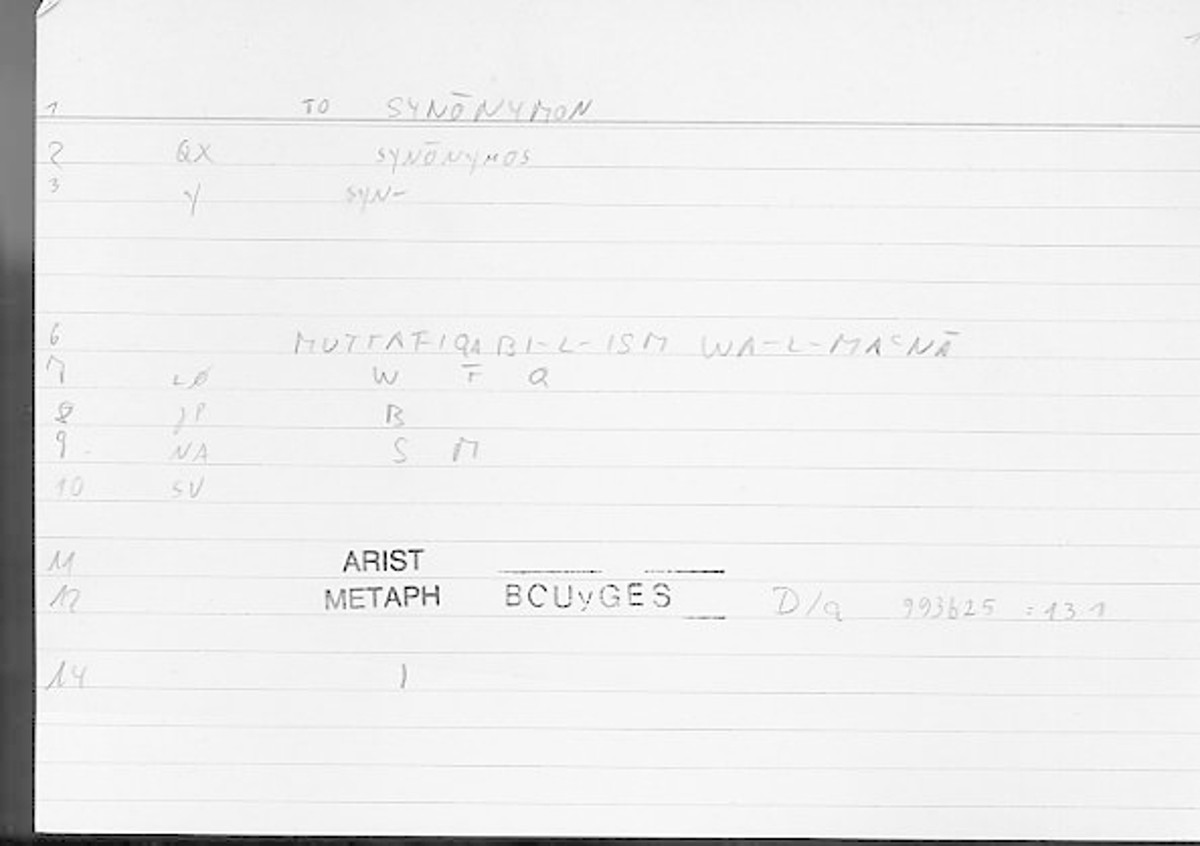 1 TO SYNŌNYMON
2 QX SYNŌNYMOS
3 y SYN-
6 MUTTAFIQA BI-L-ISM WA-L-MAʿNĀ
7 LØ W F̄ Q
8 JP B
9 NA S M
10 SV
11 ARIST
12 METAPH BCUyGES D/a 993b25 :13 1
14 1